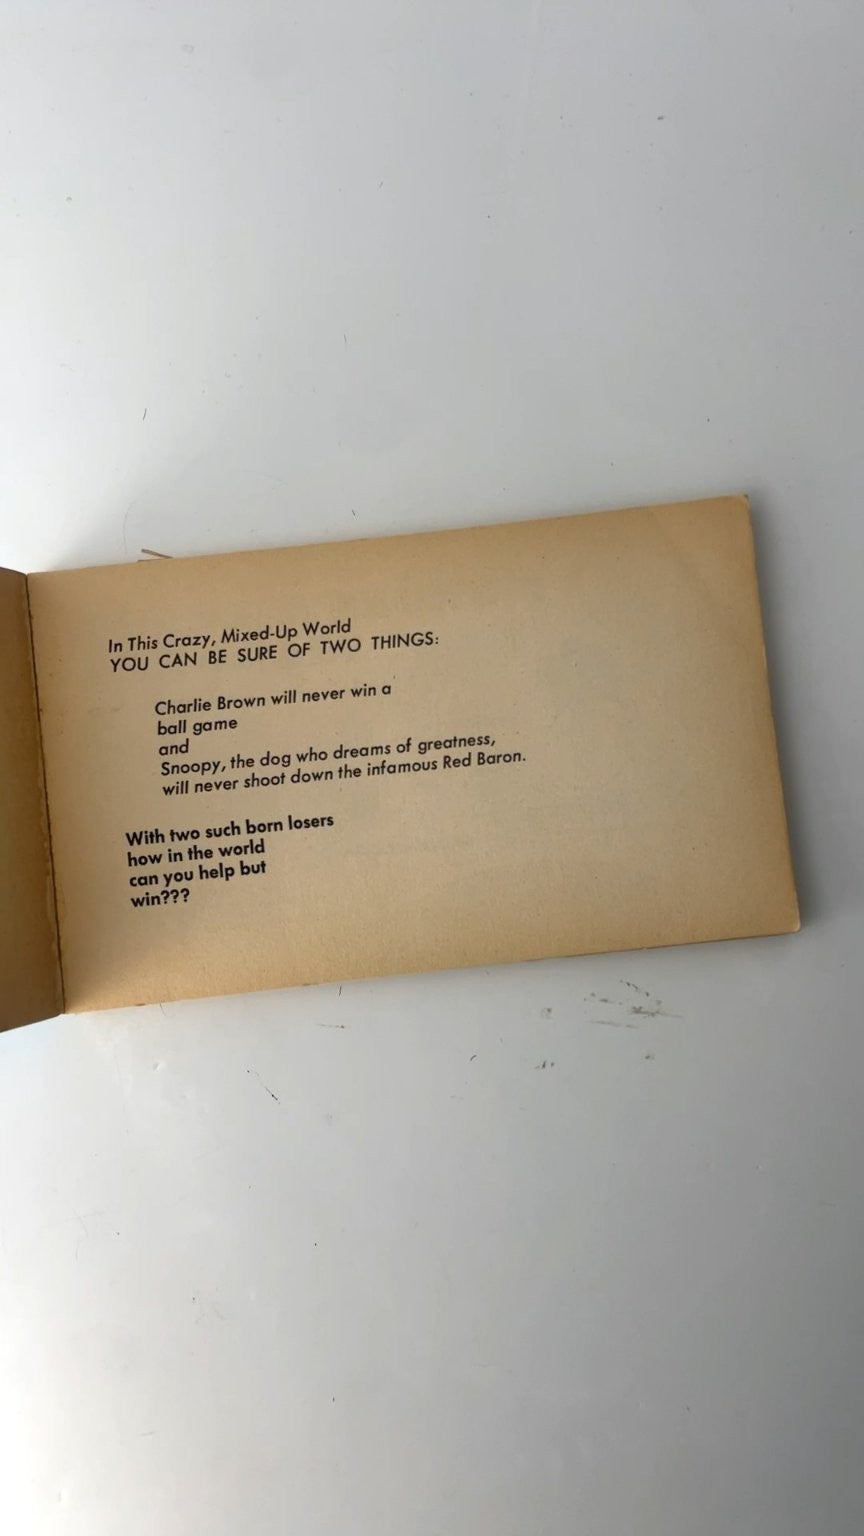 In This Crazy, Mixed-Up World
YOU CAN BE SURE OF TWO THINGS:
Charlie Brown will never win a
ball game
and
Snoopy, the dog who dreams of greatness,
will never shoot down the infamous Red Baron.
With two such born losers
how in the world
can you help but
win???